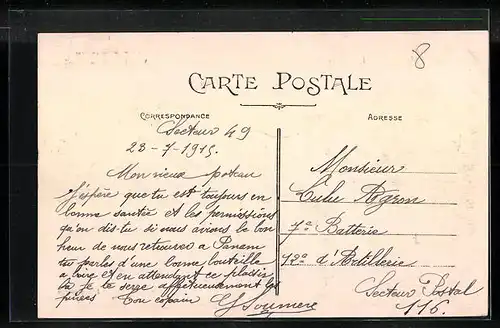 8
CARTE POSTALE
CORRESPONDANCE
ADRESSE
Secteur 49
23-7-1915.
Mon vieux poteau
J'éspère que tu est toujours en
bonne santée et les permissions
qu'on dis-tu si nous avions le bon
heur de nous retouvres a Panam
tu parles d'une bonne bouteille
a boire et en attendant ce plaisir
la je te serge affectueusement les
pinces Ton copain
Monsieur
Lulu Agron
7e Batterie
12e d'Artillerie
Secteur Postal
116.